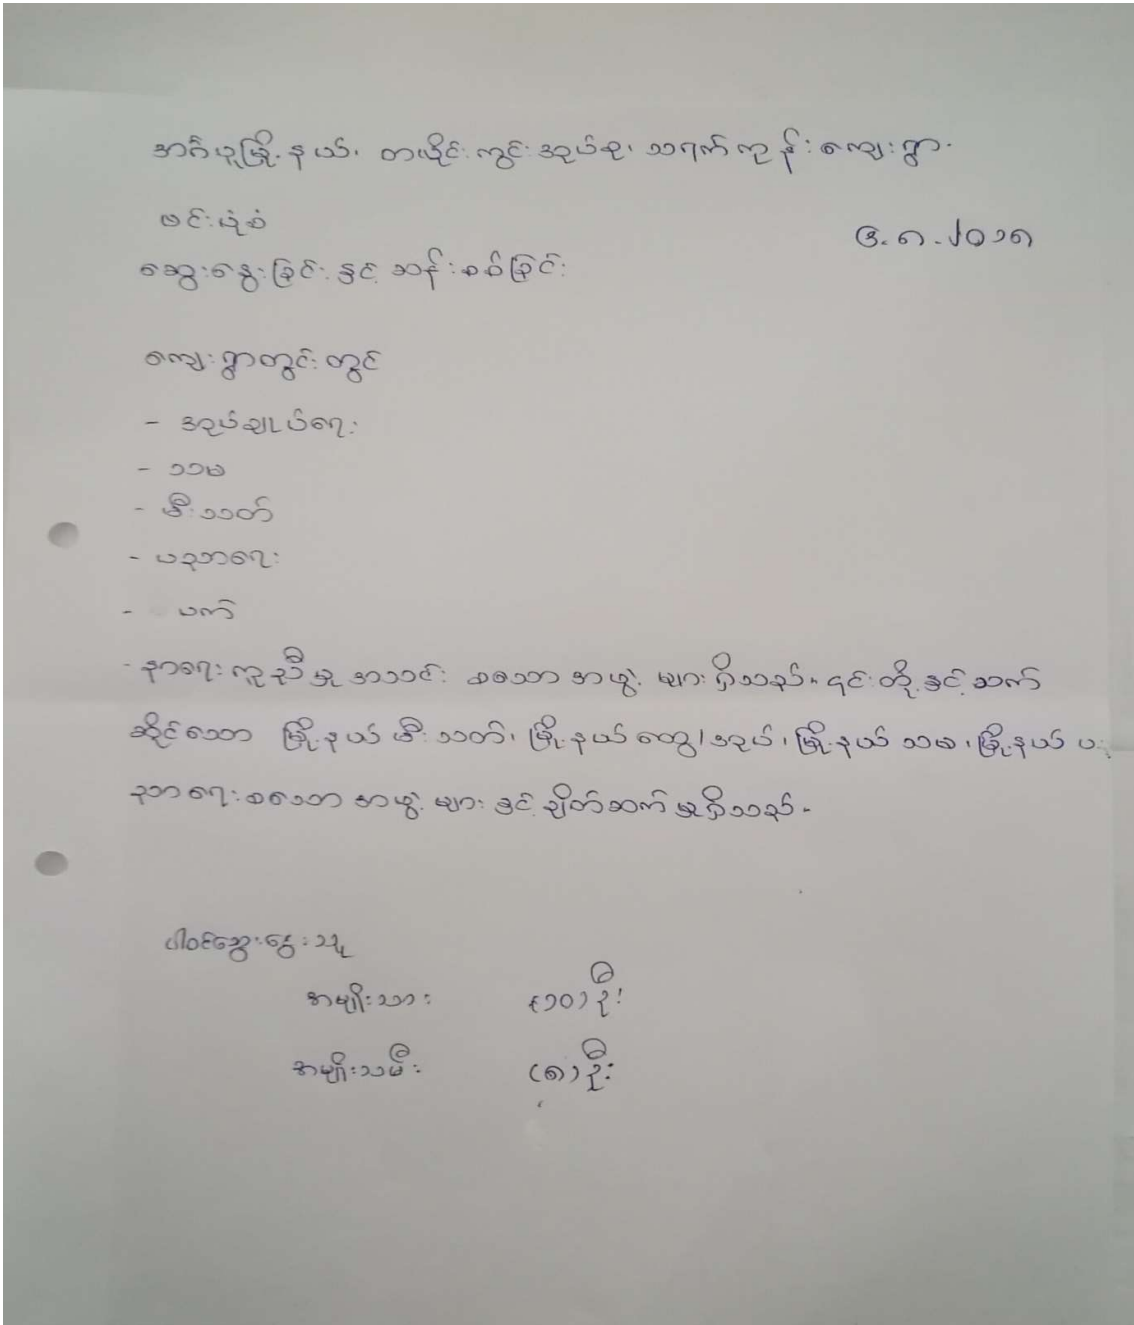 အင်္ဂပူမြို့နယ်၊ တယိုင်းကွင်းအုပ်စု၊ သရက်ကုန်းကျေးရွာ။
ဗင်းပုံစံ
၃.၈.၂၀၁၈
ဆွေးနွေးခြင်းနှင့် ဆန်းစစ်ခြင်း
ကျေးရွာတွင်းတွင်
- အုပ်ချုပ်ရေး
- သမ
- မီးသတ်
- ပညာရေး
- ပက်
- နာရေးကူညီမှုအသင်း စသောအဖွဲ့များရှိသည်။ ၎င်းတို့နှင့်ဆက်
ဆိုင်သော မြို့နယ်မီးသတ်၊ မြို့နယ်ထွေ/အုပ်၊ မြို့နယ်သမ၊ မြို့နယ်ပ
ညာရေးစသောအဖွဲ့များနှင့်ချိတ်ဆက်မှုရှိသည်။
ပါဝင်ဆွေးနွေးသူ
အမျိုးသား (၁၀)ဦး
အမျိုးသမီး (၈)ဦး